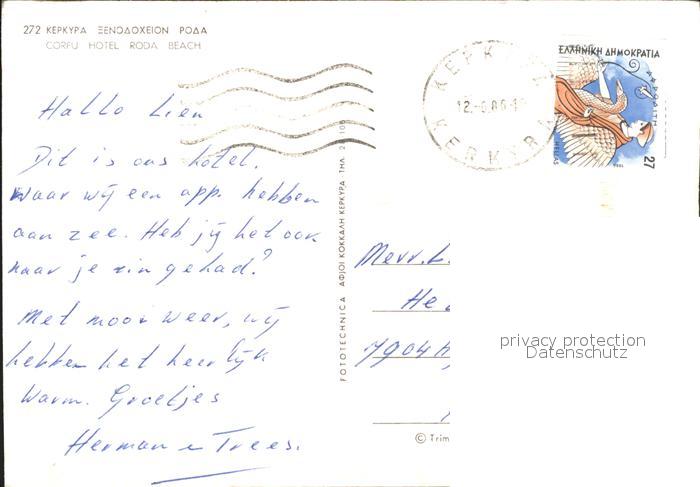 272 ΚΕΡΚΥΡΑ ΞΕΝΟΔΟΧΕΙΟΝ ΡΟΔΑ
CORFU HOTEL RODA BEACH
Hallo Lien
Dit is ons hotel.
waar wij een app. hebben
aan zee. Heb jij het ook
naar je zin gehad?
Met mooi weer, wij
hebben het heerlijk
warm. Groetjes
Herman en Trees.
FOTOTECHNICA ΑΦΙΟΙ ΚΟΚΚΑΛΗ ΚΕΡΚΥΡΑ ΤΗΛ.
ΚΕΡΚΥΡΑ
KERKYRA
ΕΛΛΗΝΙΚΗ ΔΗΜΟΚΡΑΤΙΑ
ΑΦΡΟΔΙΤΗ
HELLAS
27
Mevr. L.
He
7904
© Trim
privacy protection
Datenschutz